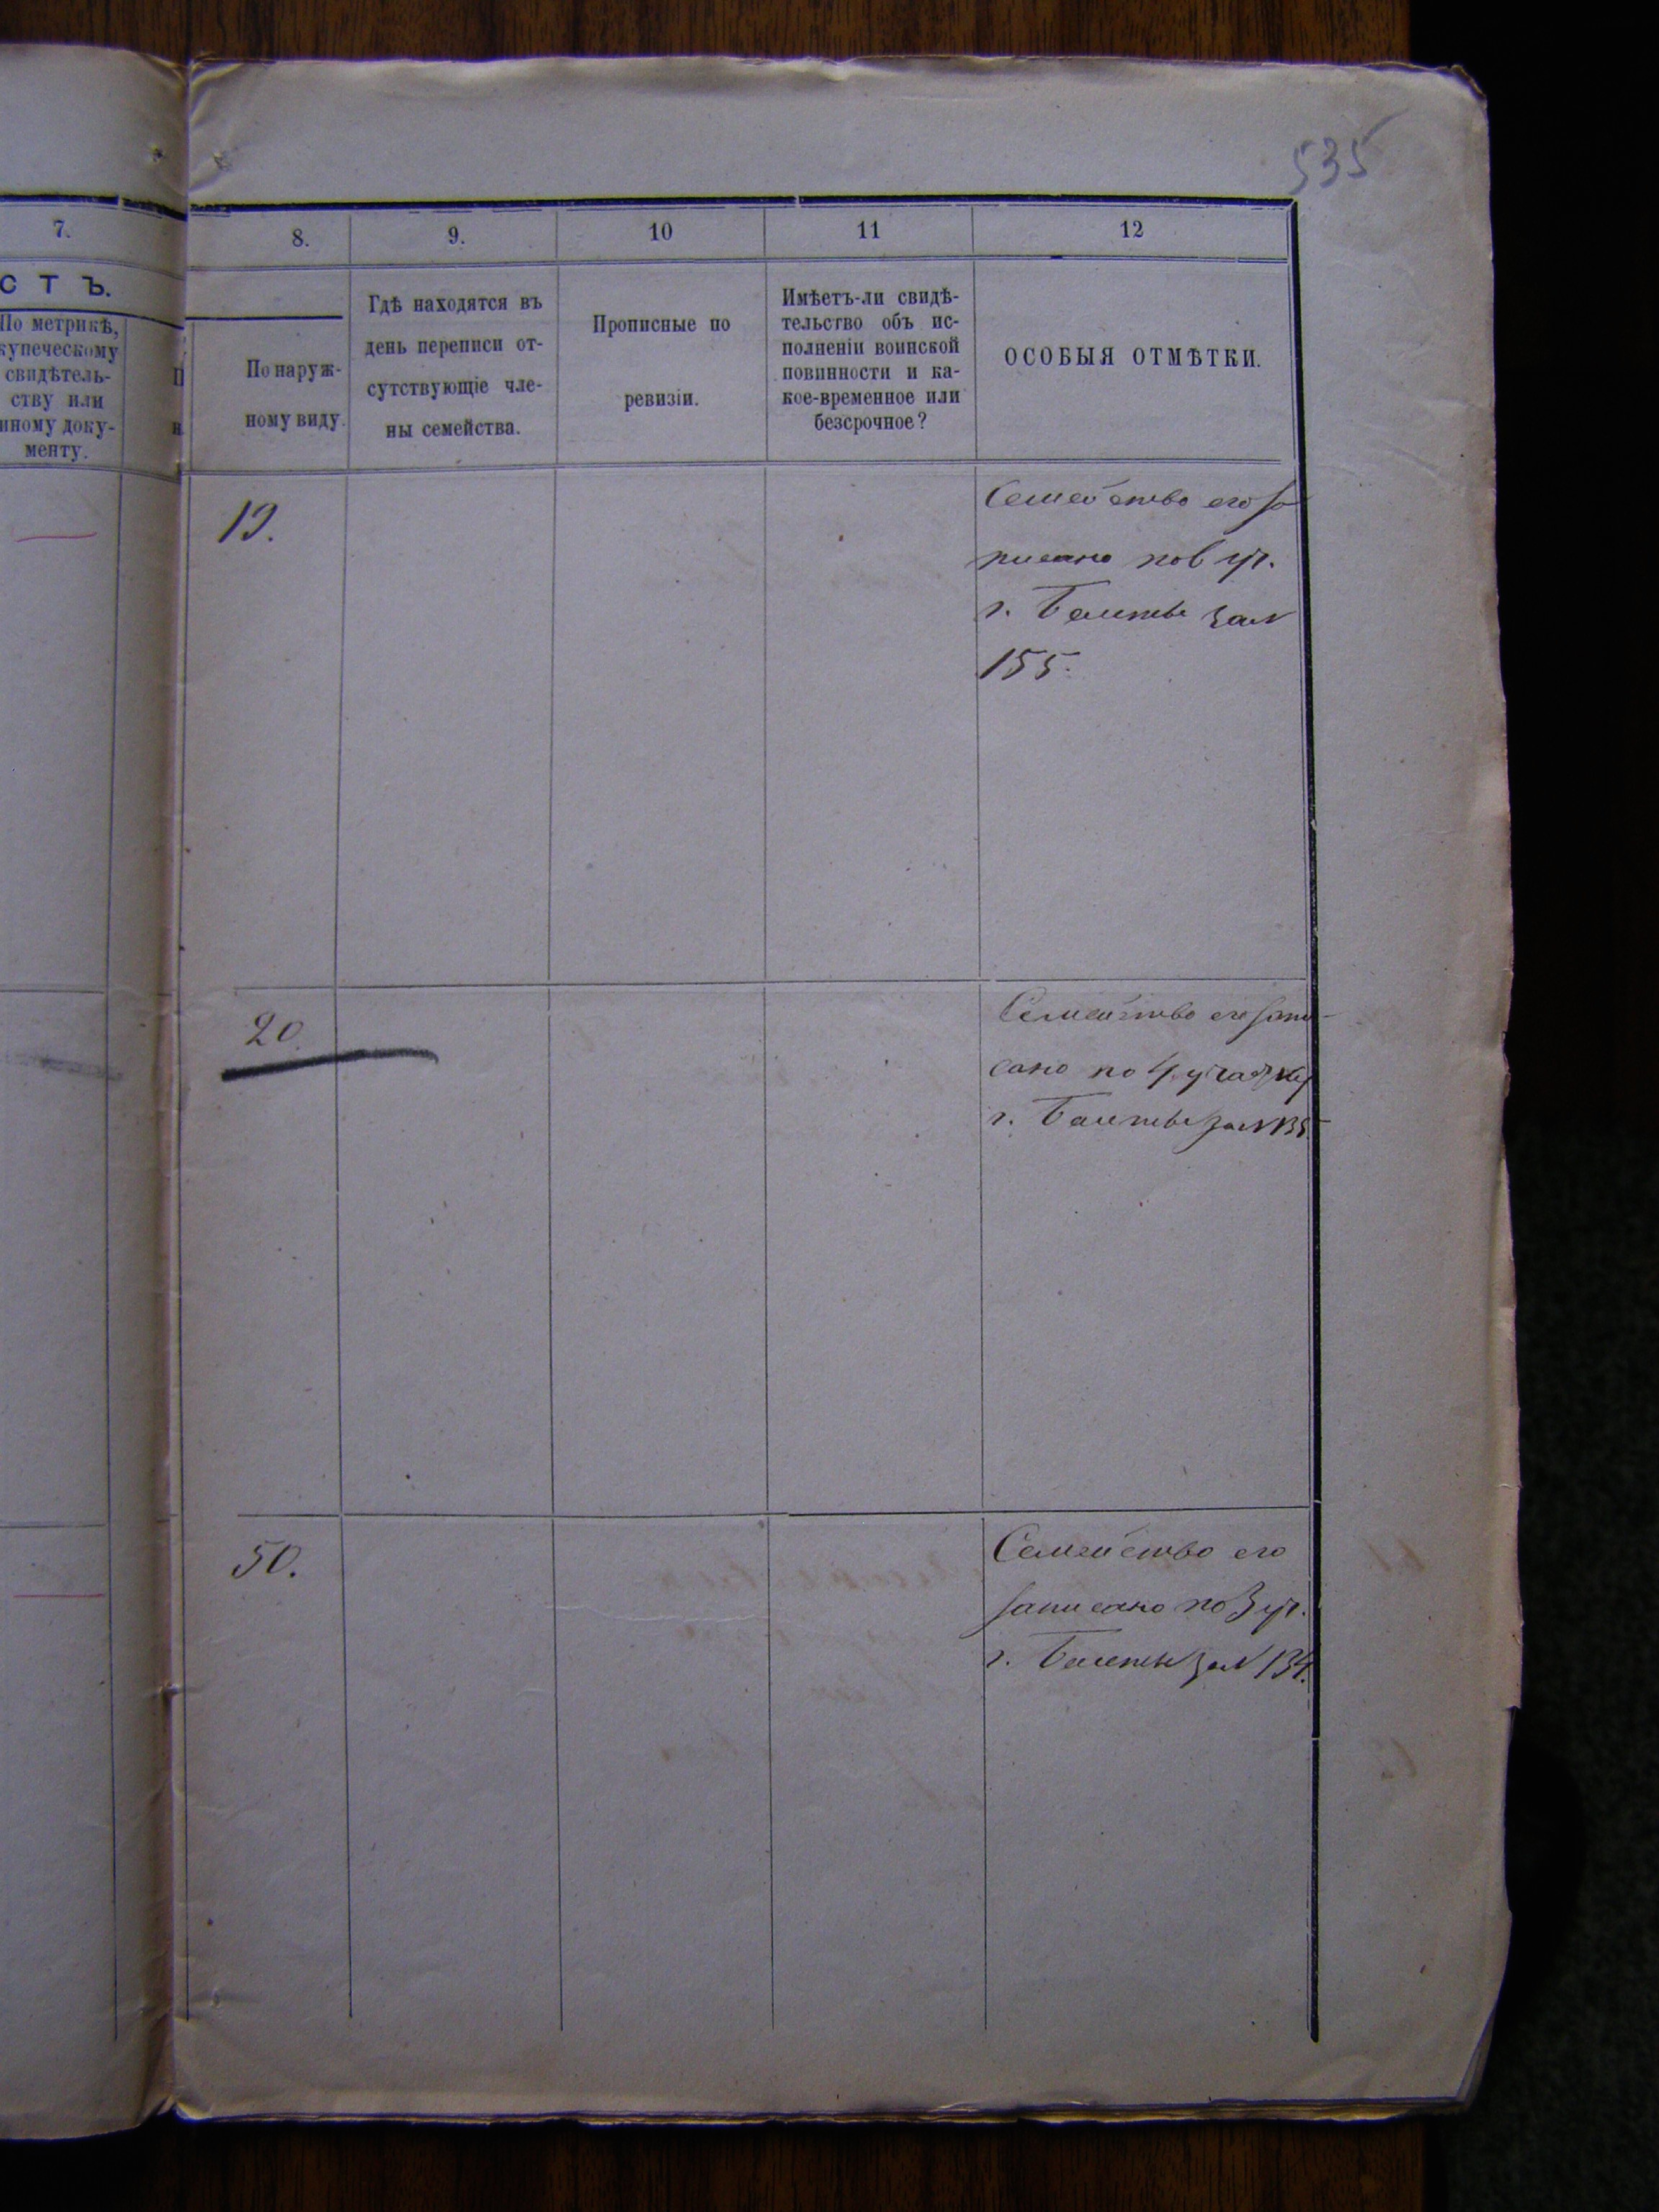 535
7.
8.
9.
10
11
12
СТЪ.
По метрикѣ,
купеческому
свидѣтель-
ству или
иному доку-
менту.
По наруж-
ному виду.
Гдѣ находятся въ
день переписи от-
сутствующіе чле-
ны семейства.
Прописные по
ревизіи.
Имѣетъ-ли свидѣ-
тельство объ ис-
полненіи воинской
повинности и ка-
кое-временное или
безсрочное?
ОСОБЫЯ ОТМѢТКИ.
19.
Семейство его за
писано по 6 уч.
г. Балты за №
155.
20.
Семейство его запи-
сано по 4 участку
г. Балты за № 135
50.
Семейство его
записано по 3 уч.
г. Балты за № 134.